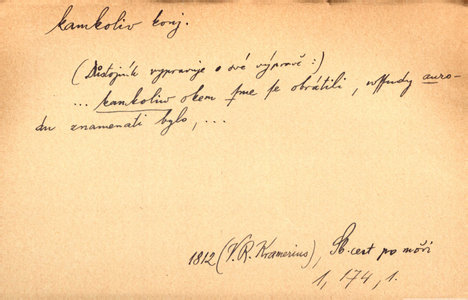 kamkoliv konj.
(Důstojník vypravuje o své výpravě:)
... kamkoliv okem sme se obrátili, wssudy auro-
du znamenati bylo, ...
1812 (V. R. Kramerius), Sb. cest po moři
1, 174, 1.